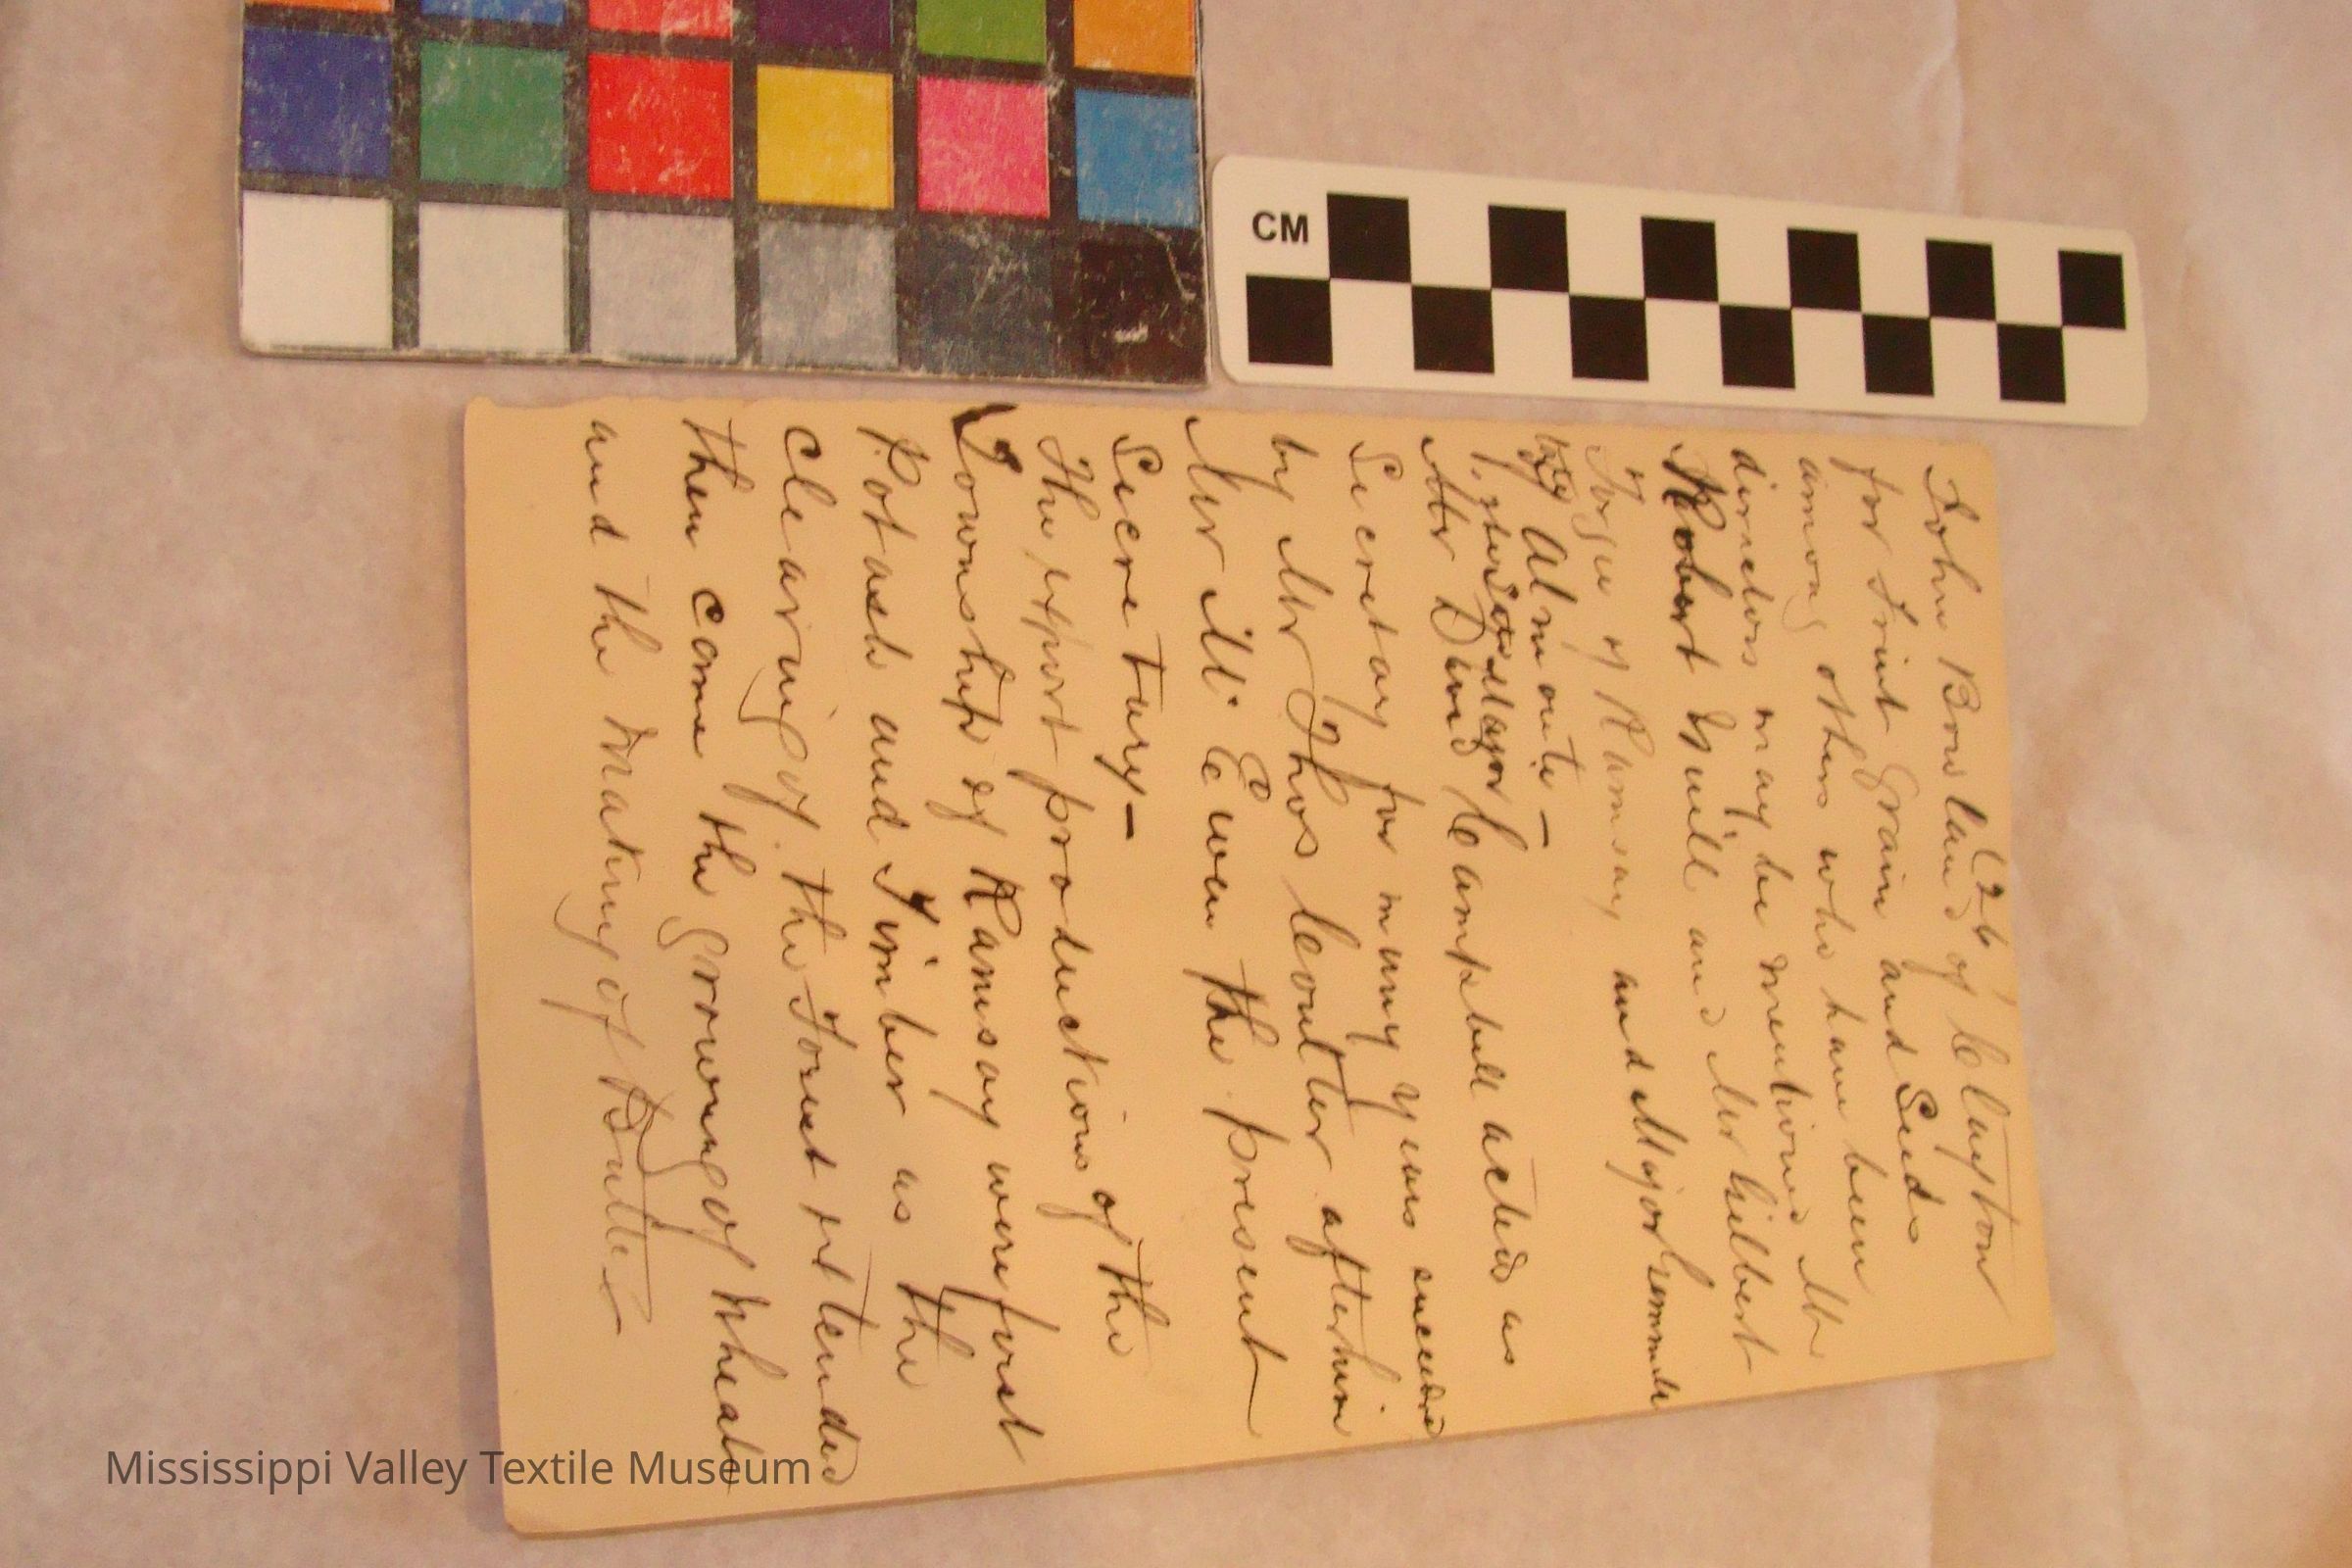 CM
(26
John Bowland of Clayton
for Fruit Grain and Seeds
among others who have been
directors may be mentioned Mr
Robert Neill and Mr Gilbert
of Ramsay and Major Gemmill
of Almonte —
Mr David Campbell acted as
Secretay for many years succeeded
by Mr Thos Coulter after him
Mr Mc Ewen the present
Secretary —
The export productions of the
Township of Ramsay were first
Potash and Timber as the
clearing of the Forest extended
then came the growing of Wheat
and the making of Butter —
Mississippi Valley Textile Museum